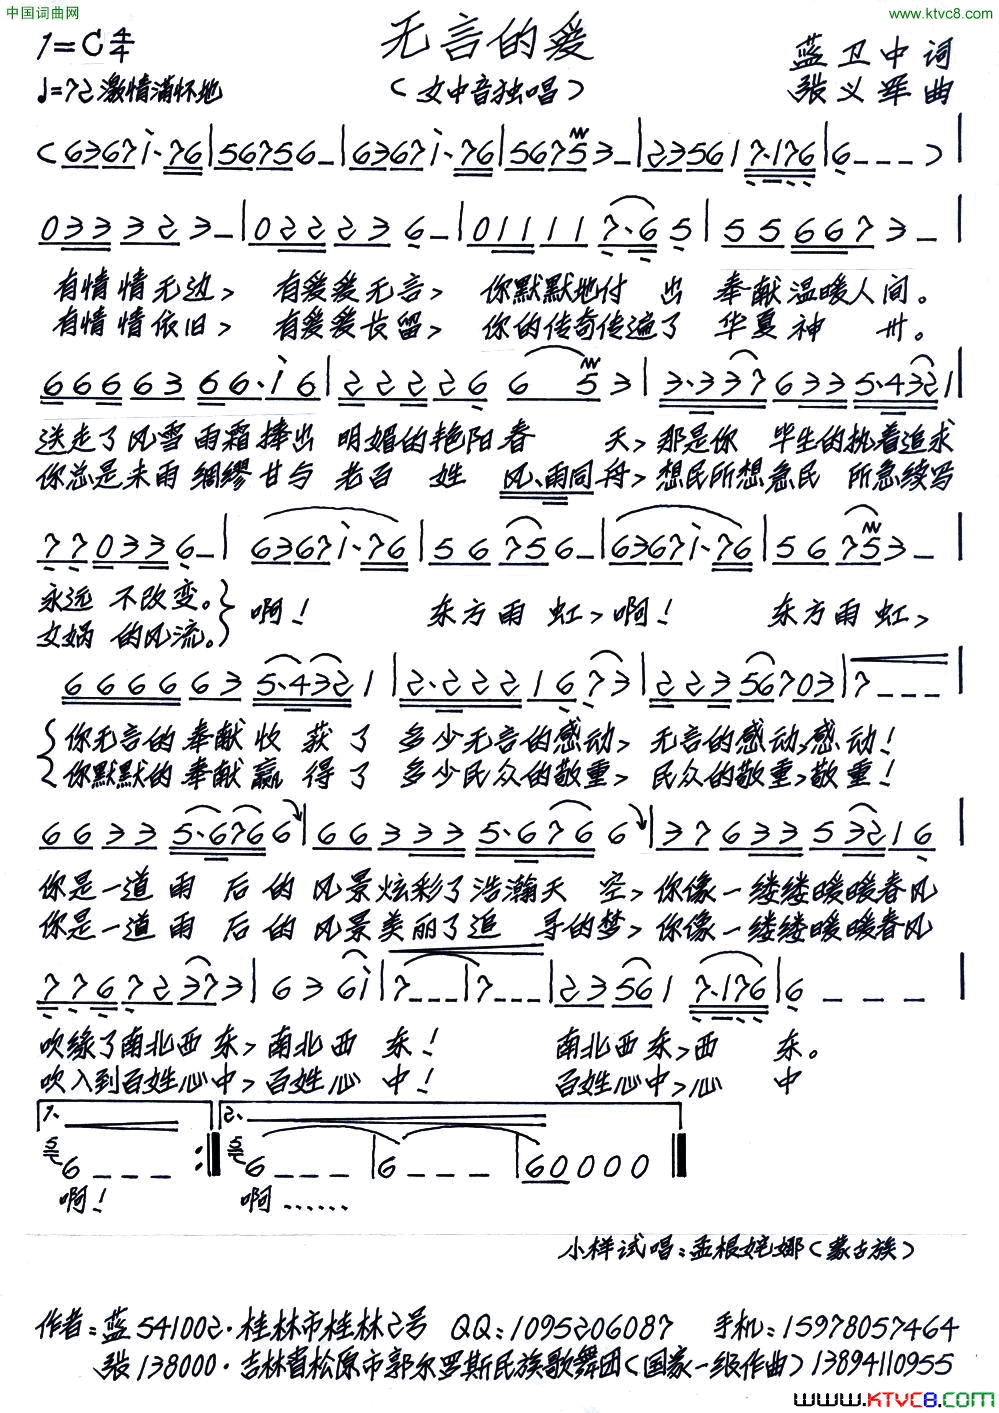 中国词曲网
www.ktvc8.com
无言的爱
1=C 4/4
蓝卫中 词
♩=72 激情满怀地
(女中音独唱)
张义军 曲
(6367i·76|56756–|6367i·76|56753–|235617·176|6–––)|
033323–|022236–|0111117·65|556673–|
有情情无边, 有爱爱无言, 你默默地付 出 奉献温暖人间。
有情情依旧, 有爱爱长留, 你的传奇传遍了 华夏神 州。
66663 66·i6|22226 6 53|3·337 633 5·4321|
送走了风雪雨霜捧出 明媚的艳阳春 天, 那是你 毕生的执着追求
你总是未雨绸缪甘与 老百 姓 风、雨同舟, 想民所想急民 所急续写
770336–|6367i·76|56756–|6367i·76|56753–|
永远 不改变。 啊! 东方雨 虹, 啊! 东方雨虹,
女娲 的风流。
666663 5·4321|2·222 16 73|223 56703|7–––|
你无言的奉献收 获 了 多少无言的感动, 无言的感动,感动!
你默默的奉献赢 得了 多少民众的敬重, 民众的敬重,敬重!
6633 5·6766|66333 5·6766|37633 53216|
你是一道 雨 后 的 风景炫彩了浩瀚天 空, 你像一缕缕暖暖春风
你是一道 雨 后 的 风景美丽了追 寻的梦, 你像一缕缕暖暖春风
77672373|636i|7–––|7–––|235617·176|6–––|
吹缘了南北西东, 南北西 东! 南北西东,西 东。
吹入到百姓心中, 百姓心 中! 百姓心中,心 中
1. 2.
6–––:‖6–––|6–––|600000‖
啊! 啊……
小样试唱:孟根姹娜(蒙古族)
作者:蓝 541002·桂林市桂林2号 QQ:1095206087 手机:15978057464
张 138000·吉林省松原市郭尔罗斯民族歌舞团(国家一级作曲)13894110955
www.KTVC8.com